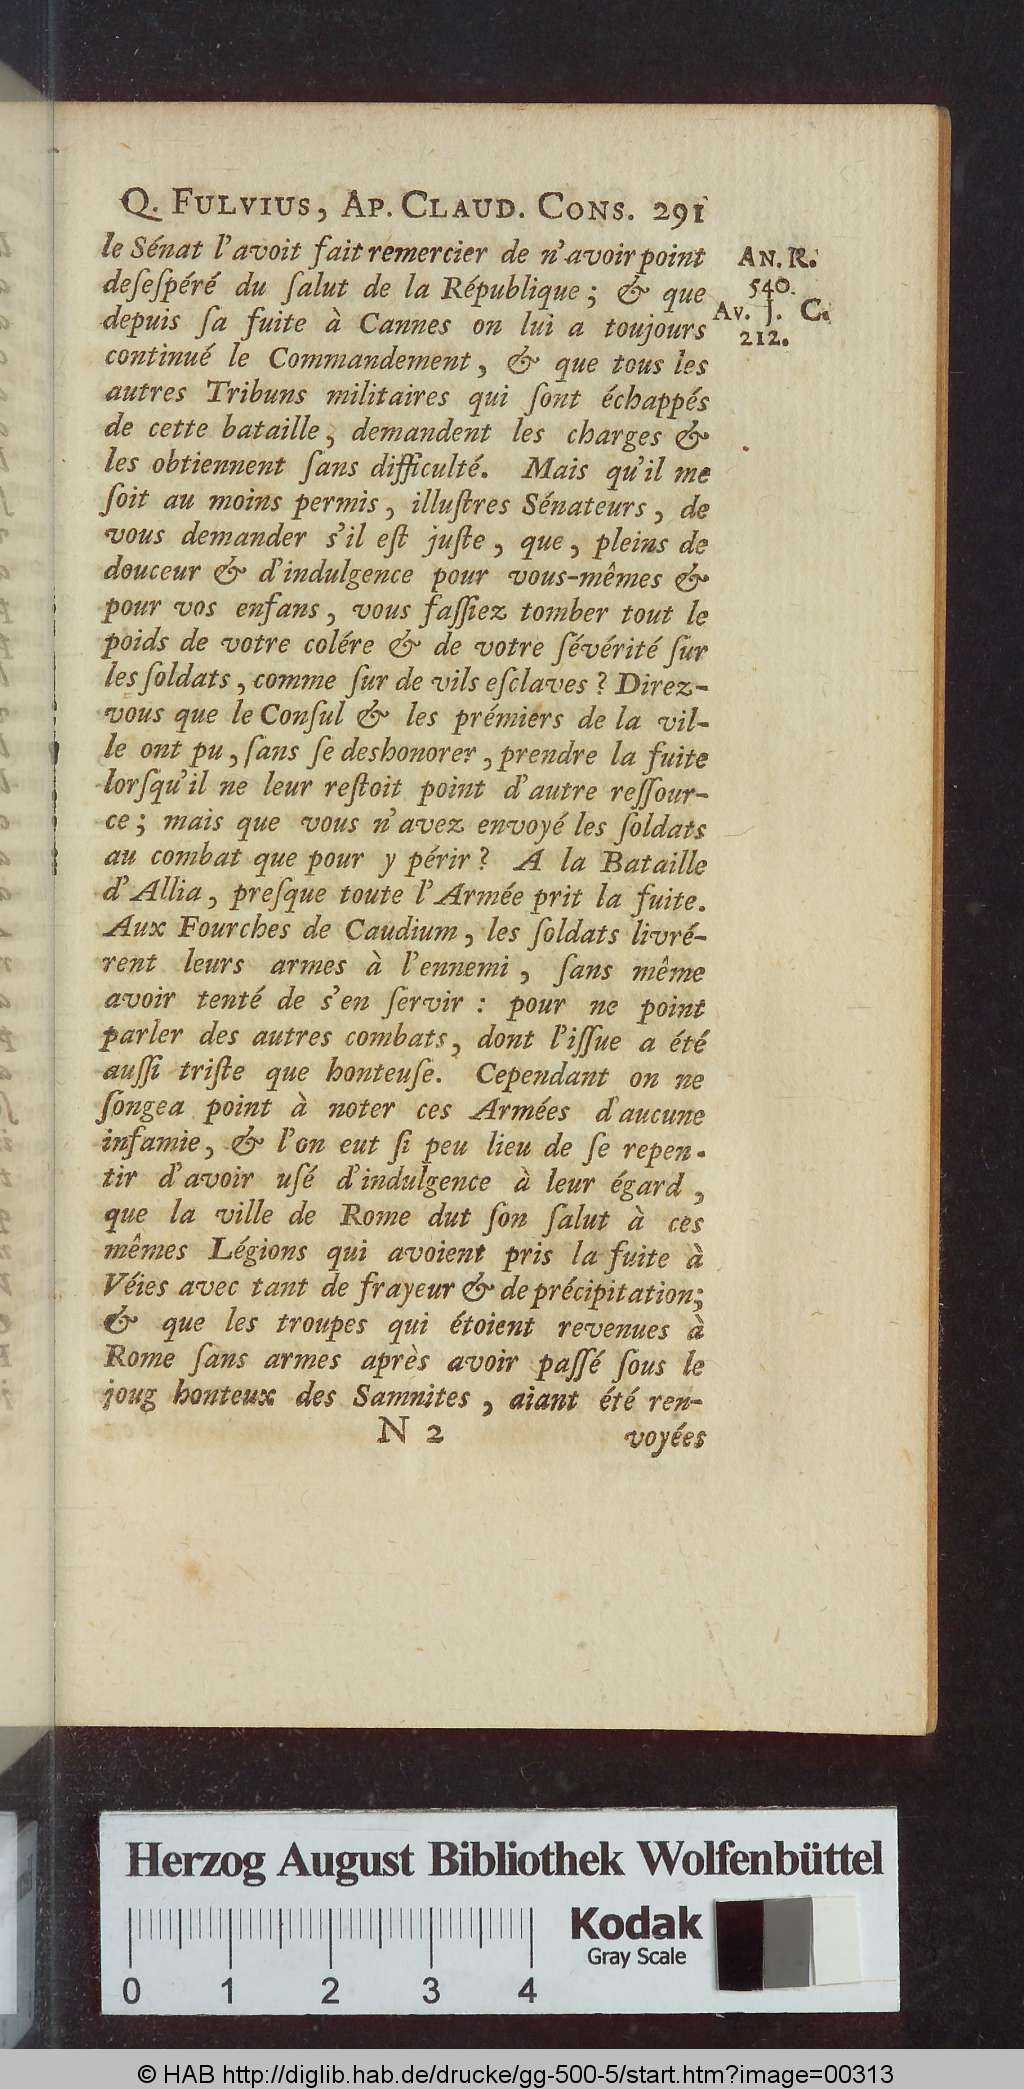 Q. FULVIUS, AP. CLAUD. CONS. 291
le Sénat l'avoit fait remercier de n'avoir point
deſeſpéré du ſalut de la République; & que
depuis ſa fuite à Cannes on lui a toujours
continué le Commandement, & que tous les
autres Tribuns militaires qui ſont échappés
de cette bataille, demandent les charges &
les obtiennent ſans difficulté. Mais qu'il me
ſoit au moins permis, illuſtres Sénateurs, de
vous demander s'il eſt juſte, que, pleins de
douceur & d'indulgence pour vous-mêmes &
pour vos enfans, vous faſſiez tomber tout le
poids de votre colére & de votre ſévérité ſur
les ſoldats, comme ſur de vils eſclaves? Direz-
vous que le Conſul & les prémiers de la vil-
le ont pu, ſans ſe deshonorer, prendre la fuite
lorſqu'il ne leur reſtoit point d'autre reſſour-
ce; mais que vous n'avez envoyé les ſoldats
au combat que pour y périr? A la Bataille
d'Allia, preſque toute l'Armée prit la fuite.
Aux Fourches de Caudium, les ſoldats livré-
rent leurs armes à l'ennemi, ſans même
avoir tenté de s'en ſervir: pour ne point
parler des autres combats, dont l'iſſue a été
auſſi triſte que honteuſe. Cependant on ne
ſongea point à noter ces Armées d'aucune
infamie, & l'on eut ſi peu lieu de ſe repen-
tir d'avoir uſé d'indulgence à leur égard,
que la ville de Rome dut ſon ſalut à ces
mêmes Légions qui avoient pris la fuite à
Véies avec tant de frayeur & de précipitation;
& que les troupes qui étoient revenues à
Rome ſans armes après avoir paſſé ſous le
joug honteux des Samnites, aiant été ren-
N 2 voyées
AN. R.
540.
AV. J. C.
212.
Herzog August Bibliothek Wolfenbüttel
Kodak
Gray Scale
0 1 2 3 4
© HAB http://diglib.hab.de/drucke/gg-500-5/start.htm?image=00313